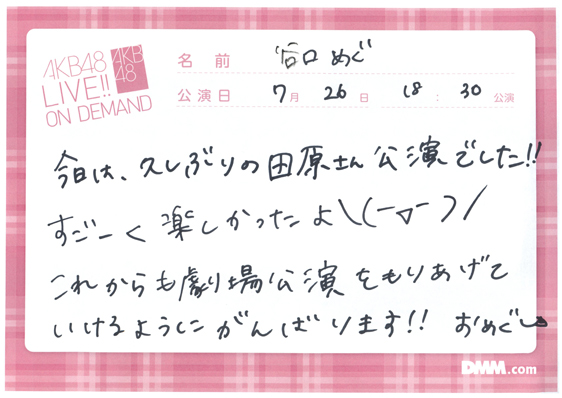 AKB48
LIVE!!
ON DEMAND
AKB
48
名前 谷口 めぐ
公演日 7月 26日 18:30 公演
今日は、久しぶりの田原さん公演でした!!
すごーく楽しかったよ\(ー▽ー)/
これからも劇場公演をもりあげて
いけるようにがんばります!! おめぐ
DMM.com